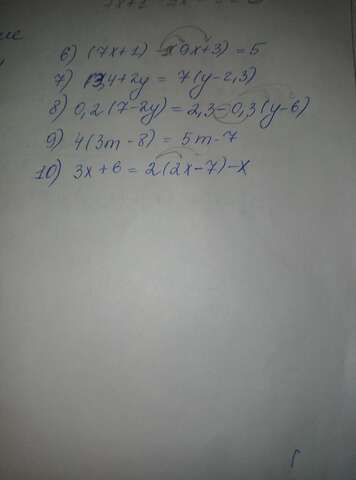 6) (7x+1) - (9x+3) = 5
7) 3,4+2y = 7(y-2,3)
8) 0,2(7-2y) = 2,3-0,3(y-6)
9) 4(3m-8) = 5m-7
10) 3x+6 = 2(2x-7)-x